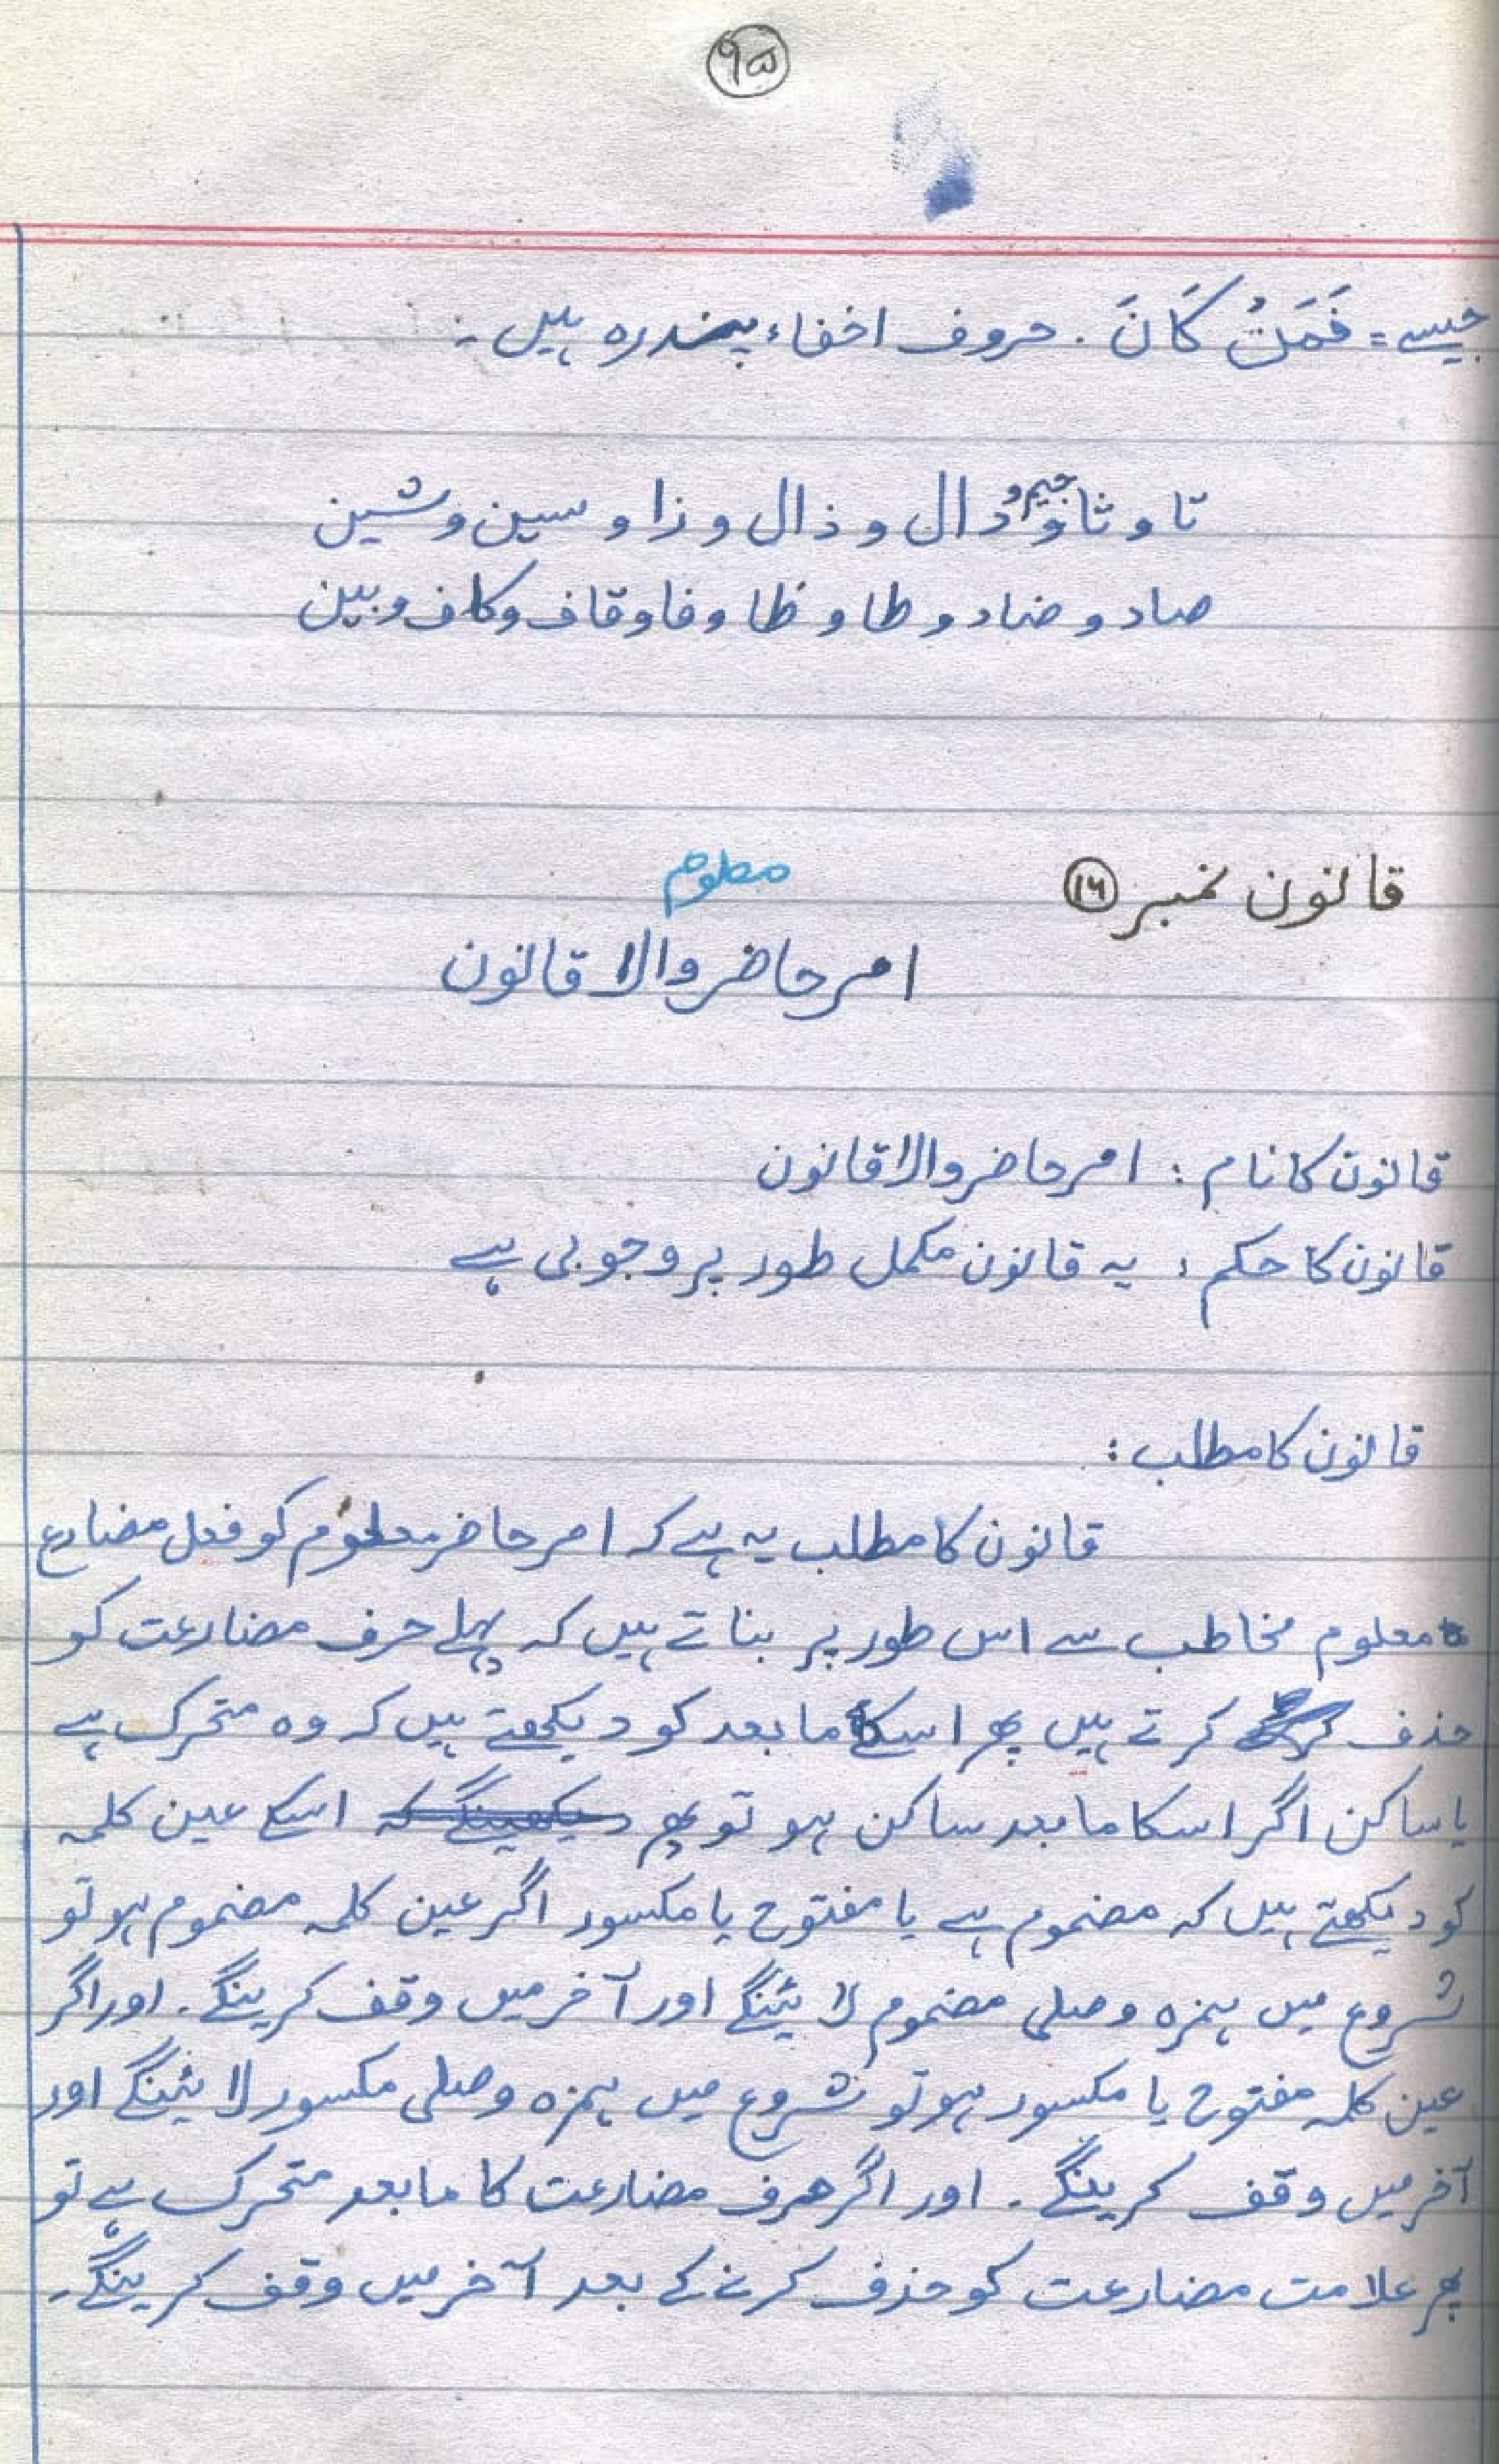 ۹۵
جیسے = فَمَنْ کَانَ . حروف اخفاء پندرہ ہیں ۔
تا و ثا و جیم و دال و ذال و زا و سین و شین
صاد و ضاد و طا و ظا و فا و قاف و کاف و بین
قانون نمبر ۱۶
معلوم
امر حاضر والا قانون
قانون کا نام : امر حاضر والا قانون
قانون کا حکم : یہ قانون مکمل طور پر وجوبی ہے
قانون کا مطلب :
قانون کا مطلب یہ ہے کہ امر حاضر معلوم کو فعل مضارع
معلوم مخاطب سے اس طور پر بناتے ہیں کہ پہلے حرف مضارعت کو
حذف کرتے ہیں پھر اسکے مابعد کو دیکھتے ہیں کہ وہ متحرک ہے
یا ساکن اگر اسکا مابعد ساکن ہو تو پھر دیکھینگے کہ اسکے عین کلمہ
کو دیکھتے ہیں کہ مضموم ہے یا مفتوح یا مکسور اگر عین کلمہ مضموم ہو تو
شروع میں ہمزہ وصلی مضموم لائینگے اور آخر میں وقف کرینگے . اور اگر
عین کلمہ مفتوح یا مکسور ہو تو شروع میں ہمزہ وصلی مکسور لائینگے اور
آخر میں وقف کرینگے . اور اگر حرف مضارعت کا مابعد متحرک ہے تو
پھر علامت مضارعت کو حذف کرنے کے بعد آخر میں وقف کرینگے ۔